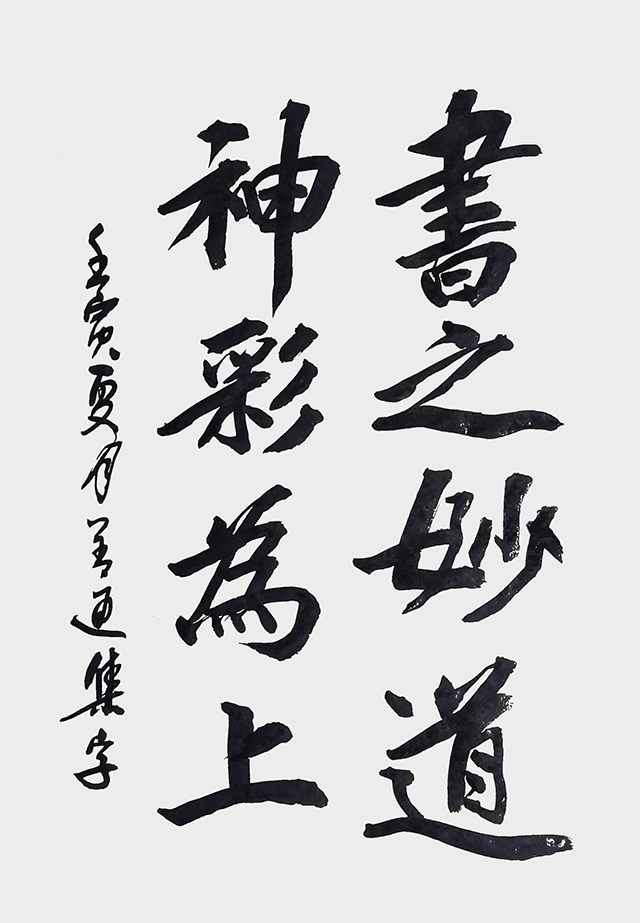 書之妙道
神彩為上
壬寅夏月善通集字